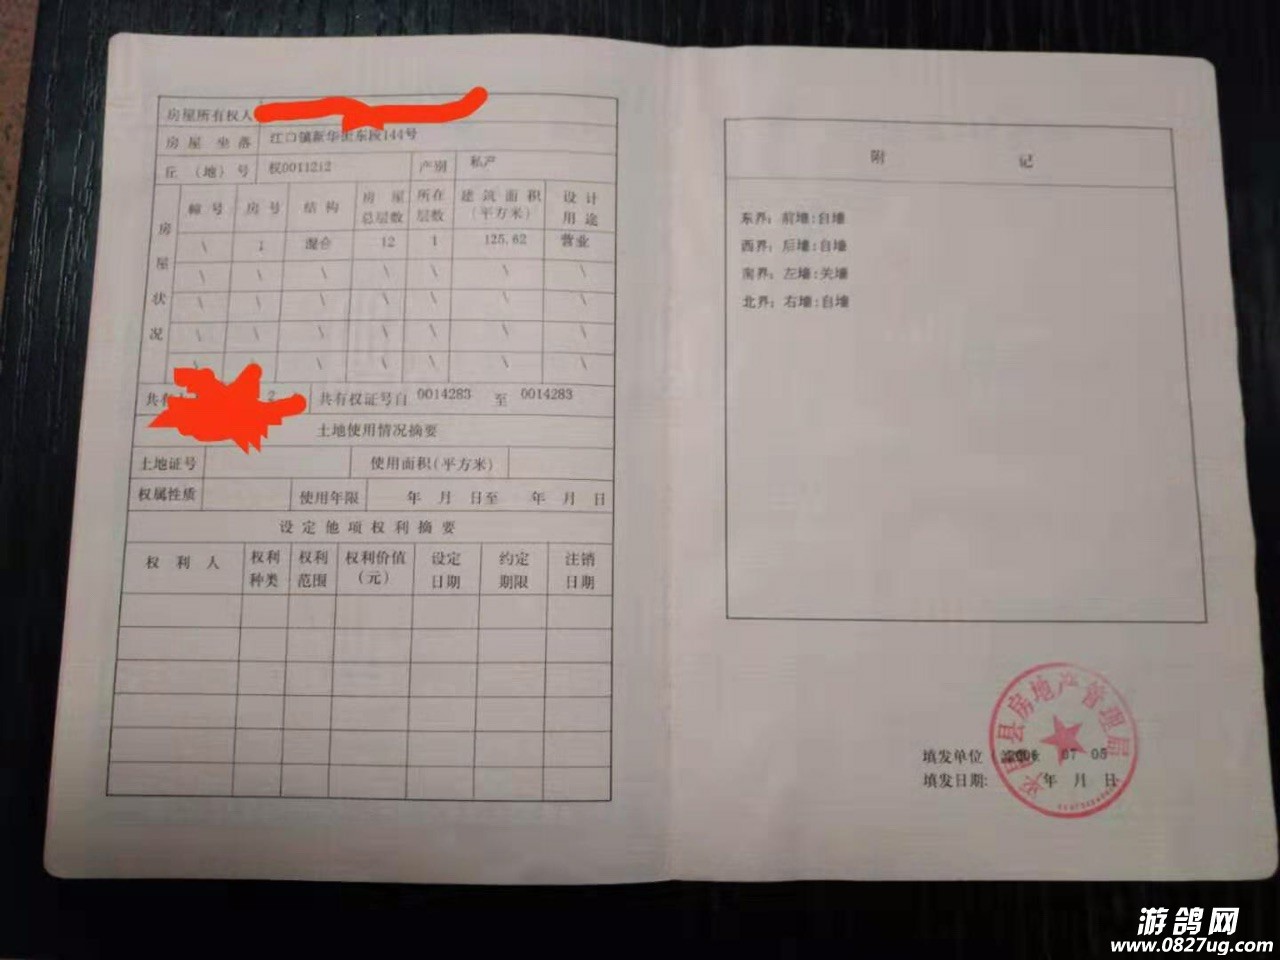 房屋所有权人
房屋坐落 江口镇新华街东段144号
丘（地）号 权0011212 产别 私产
房屋状况
幢号 房号 结构 房屋总层数 所在层数 建筑面积（平方米） 设计用途
\ 1 混合 12 1 125.62 营业
\ \ \ \ \ \ \
\ \ \ \ \ \ \
\ \ \ \ \ \ \
\ \ \ \ \ \
共有 2 共有权证号自 0014283 至 0014283
土地使用情况摘要
土地证号 使用面积(平方米)
权属性质 使用年限 年 月 日至 年 月 日
设定他项权利摘要
权利人 权利种类 权利范围 权利价值（元） 设定日期 约定期限 注销日期
附 记
东界: 前墙:自墙
西界: 后墙:自墙
南界: 左墙:关墙
北界: 右墙:自墙
填发单位 2006 07 05
填发日期: 年 月 日
县房地产管理局
游鸽网
www.0827ug.com